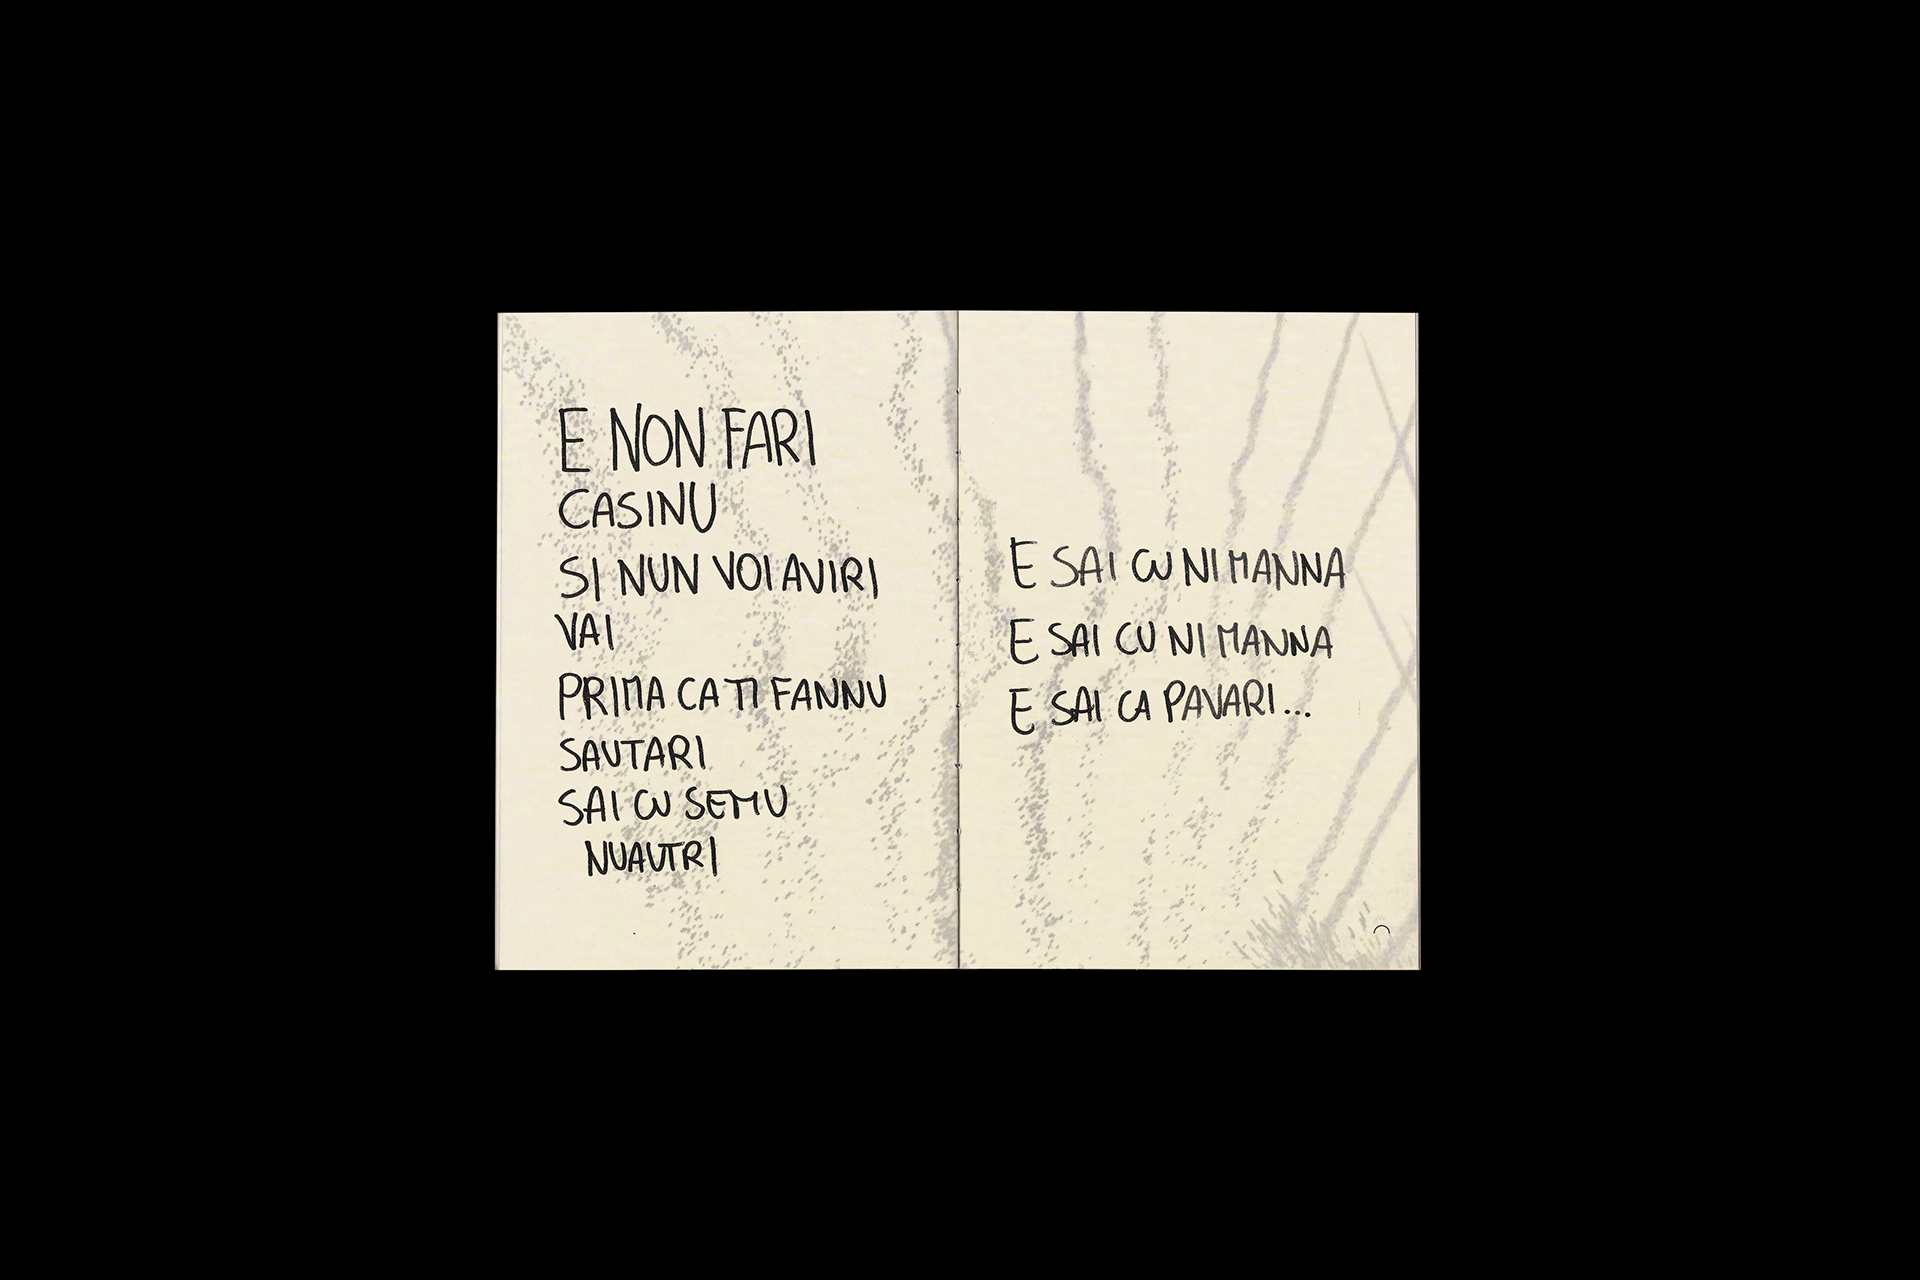 E NON FARI
CASINU
SI NUN VOI AVIRI
VAI
PRIMA CA TI FANNU
SAUTARI
SAI CU SEMU
NUAUTRI
E SAI CU NI MANNA
E SAI CU NI MANNA
E SAI CA PAVARI...